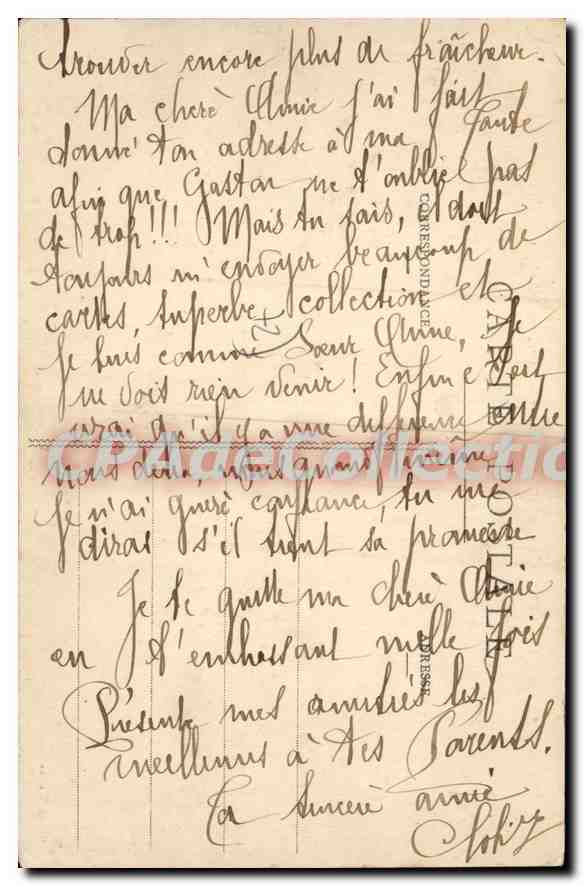 trouver encore plus de fraîcheur.
Ma cherè Amie j'ai fait
donné ton adresse à ma Tante
afin que Gaston ne t'oublie pas
de trop!!! Mais tu sais, il doit
toujours m'envoyer beaucoup de
cartes, superbe collection et
je suis comme Sœur Anne, je
ne vois rien venir! Enfin c'est
vrai qu'il y a une difference entre
nous deux, mais quand même,
je n'ai guerè confiance, tu me
diras s'il tient sa promesse
Je te quitte ma cherè Amie
en t'embrassant mille fois
Présente mes amitiés les
meilleures à tes Parents.
Ta sincerè amie
CARTE POSTALE
CORRESPONDANCE
ADRESSE
CPADeCollection